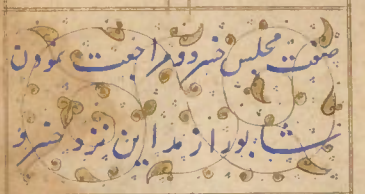 صفت مجلس خسرو و مراجعت نمودن
شاپور از مداین نزد خسرو